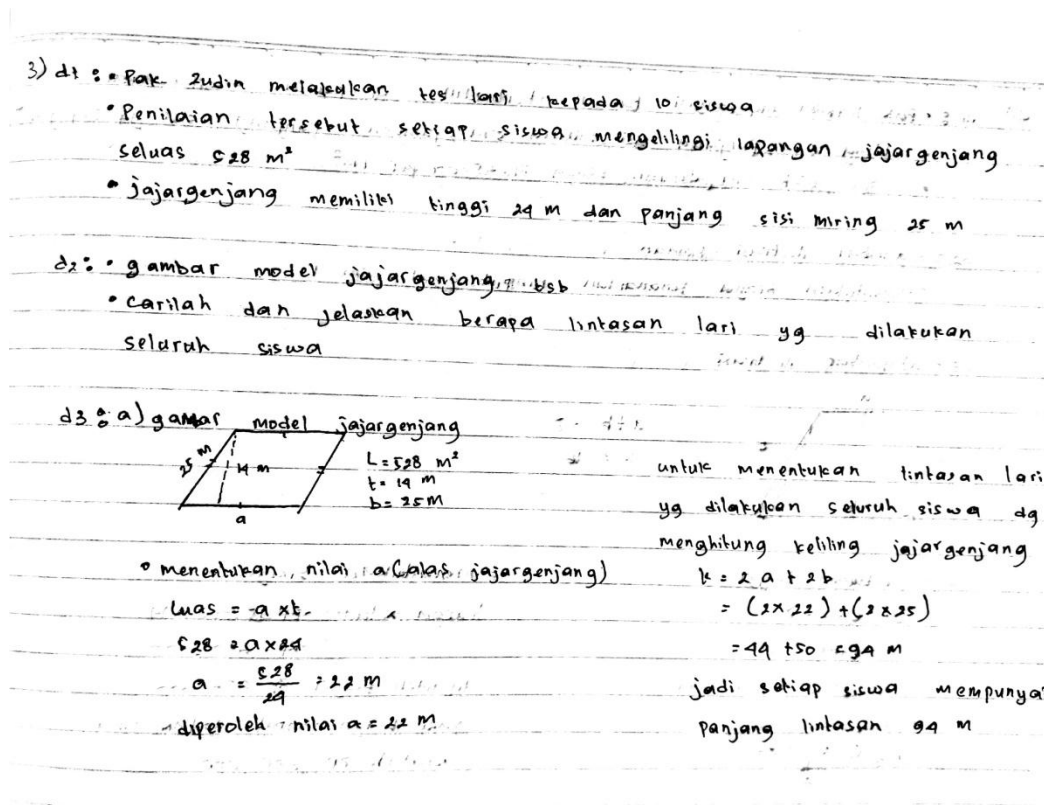 3) d1 : • Pak Zudin melakukan tes lari kepada 10 siswa
• Penilaian tersebut setiap siswa mengelilingi lapangan jajargenjang
seluas 528 m²
• jajargenjang memiliki tinggi 24 m dan panjang sisi miring 25 m
d2 : • gambar model jajargenjang tsb
• carilah dan jelaskan berapa lintasan lari yg dilakukan
seluruh siswa
d3 : a) gambar model jajargenjang
25 m
14 m
a
L = 528 m²
t = 14 m
b = 25 m
• menentukan nilai a (alas jajargenjang)
Luas = a x t
528 = a x 24
a = 528/24 = 22 m
diperoleh nilai a = 22 m
untuk menentukan lintasan lari
yg dilakukan seluruh siswa dg
menghitung keliling jajargenjang
k = 2a + 2b
= (2 x 22) + (2 x 25)
= 44 + 50 = 94 m
jadi setiap siswa mempunyai
panjang lintasan 94 m